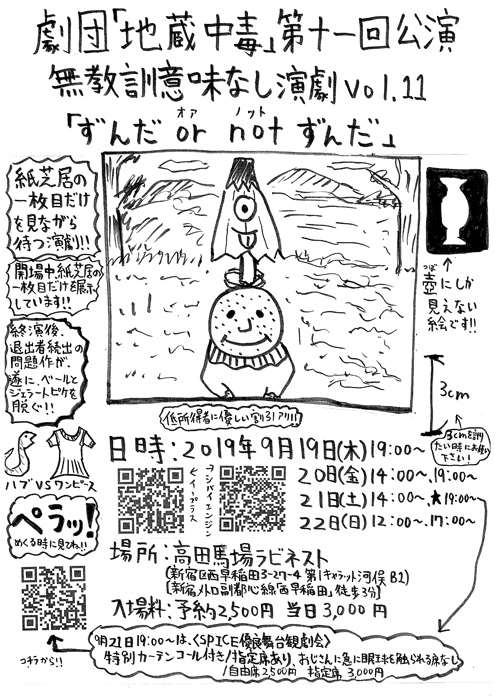 劇団「地蔵中毒」第十一回公演
無教訓意味なし演劇vol.11
「ずんだ or not ずんだ」
オア ノット
紙芝居の
一枚目だけ
を見ながら
待つ演劇!!
開場中紙芝居の
一枚目だけを展示
しています!!
終演後、
退出者続出の
問題作が、
遂に、ベールと
ジェラートピケを
脱ぐ!!
ハブVSワンピース
ペラッ!
めくる時に見てね!!
コチラから!!
つぼ
壺にしか
見えない
絵です!!
3cm
3cmを測り
たい時にお使い
下さい!
低所得者に優しい割引アリ!!
日時:2019年9月19日(木)19:00〜
20日(金)14:00〜、19:00〜
21日(土)14:00〜、★19:00〜
22日(日)12:00〜、17:00〜
イープラス
コシバイエンジン
場所:高田馬場ラビネスト
(新宿区西早稲田3-27-4 第1キャラット河俣B1)
(新宿メトロ副都心線「西早稲田」徒歩3分)
入場料:予約2,500円 当日3,000円
9月21日19:00〜は、〈SPICE優良舞台観劇会〉
特別カーテンコール付き/指定席あり、おじさんに急に眼球を触られる席なし
/自由席2500円 指定席3,000円